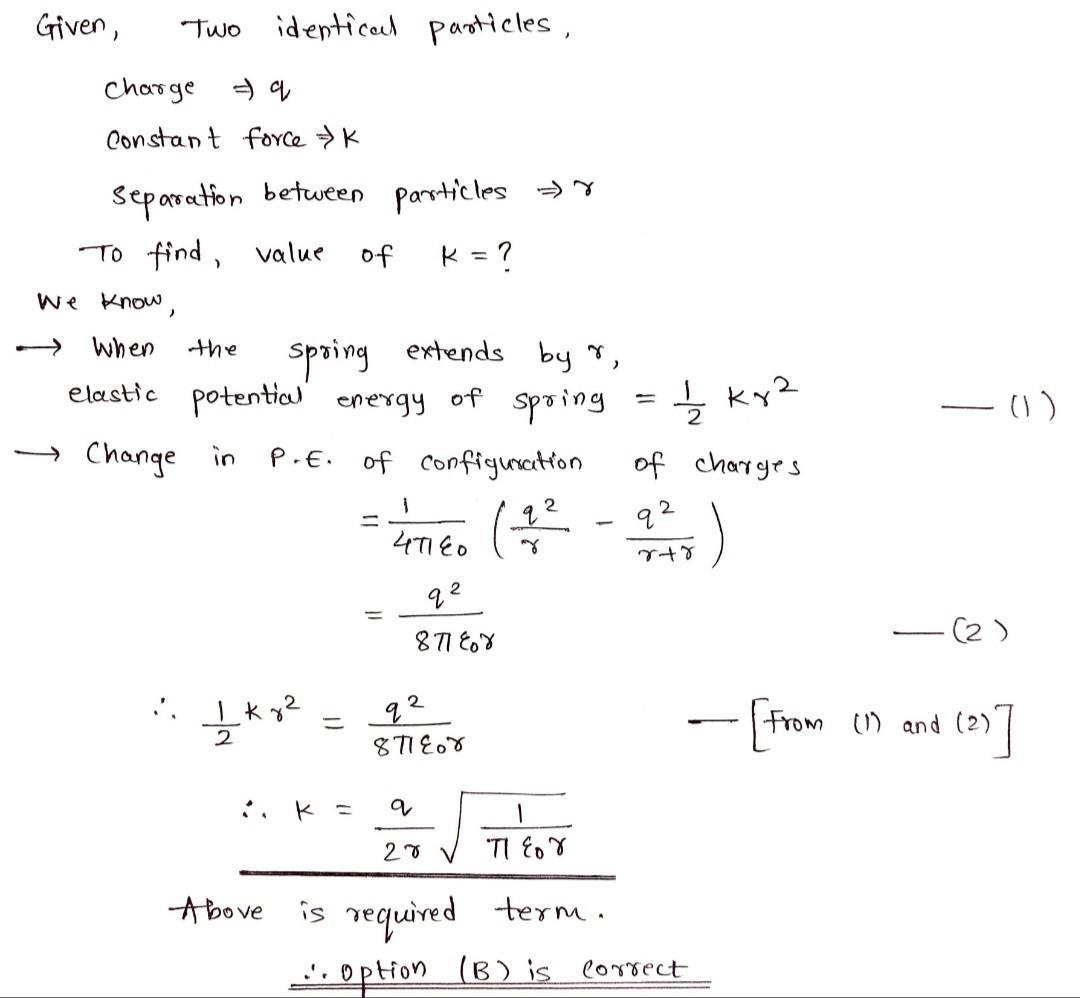 Given, Two identical particles,
charge ⇒ q
constant force ⇒ K
separation between particles ⇒ r
To find, value of K = ?
We know,
→ When the spring extends by r,
elastic potential energy of spring = 1/2 Kr² — (1)
→ Change in P.E. of configuration of charges
= 1/4πε₀ (q²/r - q²/r+r)
= q²/8πε₀r — (2)
∴ 1/2 Kr² = q²/8πε₀r — [From (1) and (2)]
∴ K = q/2r √1/πε₀r
Above is required term.
∴ option (B) is correct